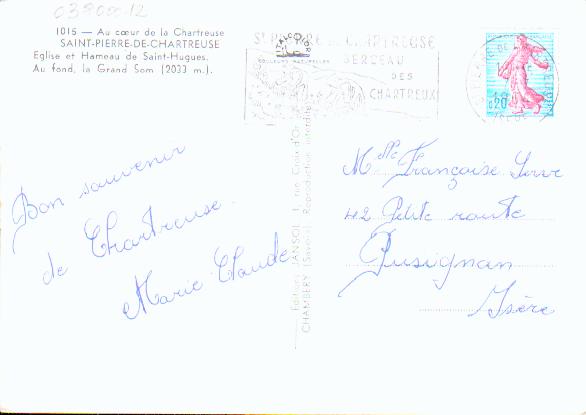 038000-12
1015 — Au cœur de la Chartreuse
SAINT-PIERRE-DE-CHARTREUSE
Eglise et Hameau de Saint-Hugues.
Au fond, la Grand Som (2033 m.).
COULEURS NATURELLES
St PIERRE DE CHARTREUSE
BERCEAU
DES
CHARTREUX
0,20
Bon souvenir
de Chartreuse.
Marie Claude
Editions JANSOL, rue Croix d'Or
CHAMBERY (Savoie) Reproduction interdite
Mlle Françoise
42 Petite route
Pusignan
Isère